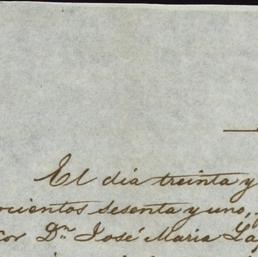 El dia treinta y
ocientos sesenta y uno,
or Dn José Maria La